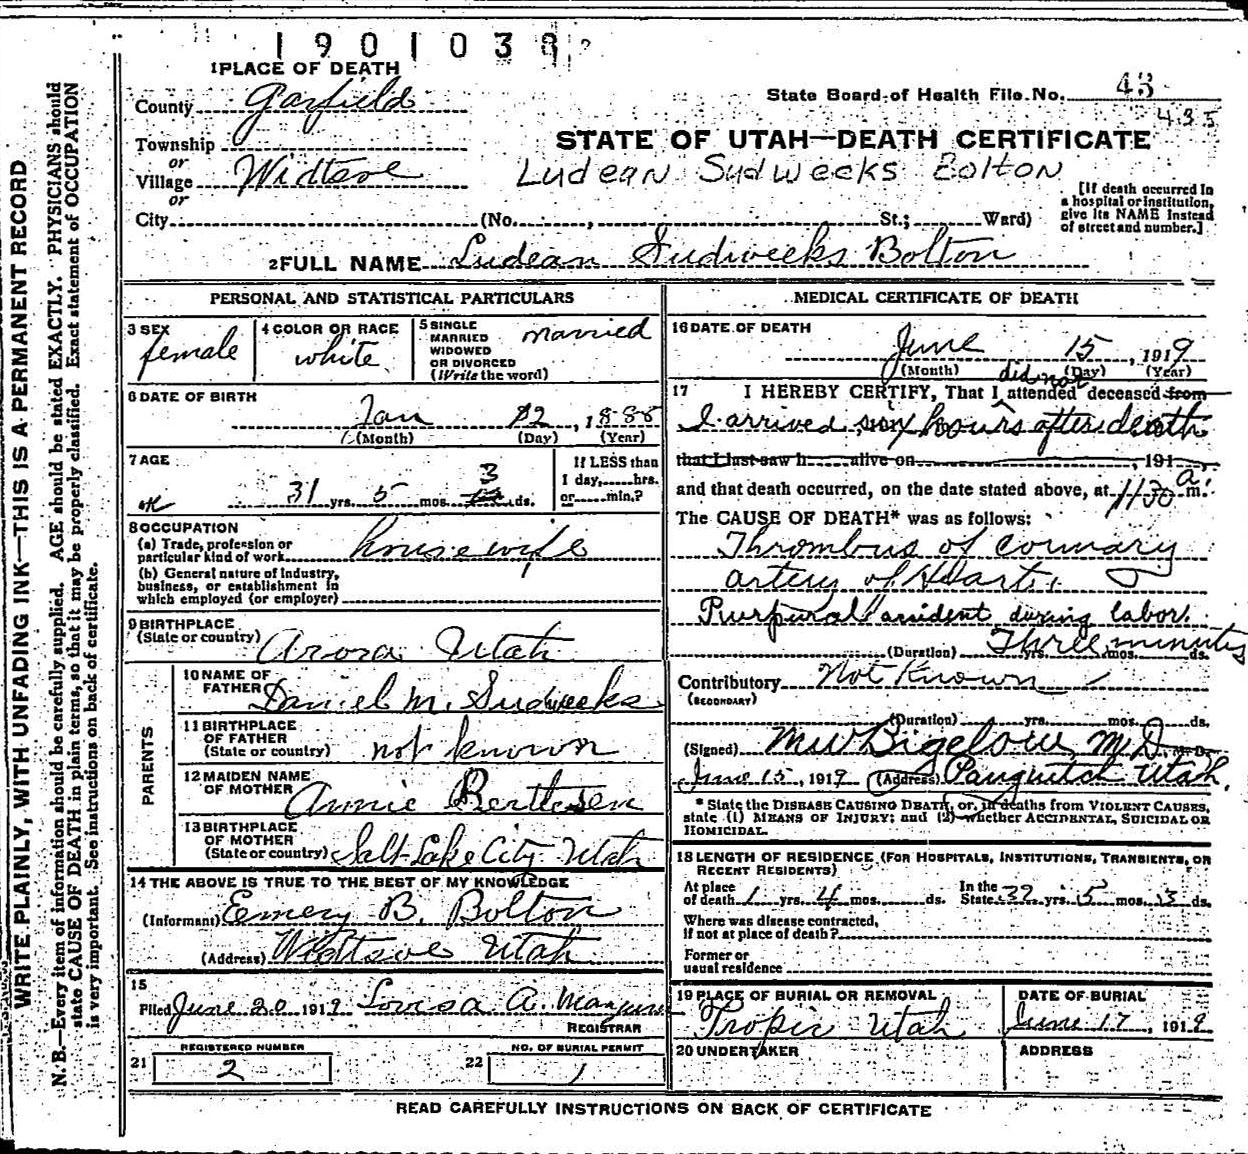 1901038
1 PLACE OF DEATH
County Garfield
State Board of Health File No. 43
435
Township
or
Village Widtsoe
or
STATE OF UTAH—DEATH CERTIFICATE
Ludean Sudweeks Bolton
[If death occurred in a hospital or institution, give its NAME instead of street and number.]
City (No. , St.; Ward)
2 FULL NAME Ludean Sudweeks Bolton
PERSONAL AND STATISTICAL PARTICULARS
3 SEX female
4 COLOR OR RACE white
5 SINGLE MARRIED WIDOWED OR DIVORCED (Write the word) married
6 DATE OF BIRTH Jan 12, 1888
(Month) (Day) (Year)
7 AGE 31 yrs. 5 mos. 3 ds.
If LESS than 1 day, hrs. or min.?
8 OCCUPATION
(a) Trade, profession or particular kind of work housewife
(b) General nature of industry, business, or establishment in which employed (or employer)
9 BIRTHPLACE
(State or country) Utah
PARENTS
10 NAME OF FATHER Daniel M. Sudweeks
11 BIRTHPLACE OF FATHER (State or country) not known
12 MAIDEN NAME OF MOTHER Annie Bertlesen
13 BIRTHPLACE OF MOTHER (State or country) Salt Lake City Utah
14 THE ABOVE IS TRUE TO THE BEST OF MY KNOWLEDGE
(Informant) Emery B. Bolton
(Address) Widtsoe Utah
15
Filed June 20 1919 Lovisa A. Mangum
REGISTRAR
REGISTERED NUMBER
21 2
NO. OF BURIAL PERMIT
22 1
MEDICAL CERTIFICATE OF DEATH
16 DATE OF DEATH
June 15, 1919
(Month) (Day) (Year)
did not
17 I HEREBY CERTIFY, That I attended deceased from
I arrived six hours after death
that I last saw h alive on , 191
and that death occurred, on the date stated above, at 1130 a. m.
The CAUSE OF DEATH* was as follows:
Thrombus of coronary
artery of Heart.
Purpural accident during labor.
(Duration) yrs. mos. ds. Three minutes
Contributory Not Known
(SECONDARY)
(Duration) yrs. mos. ds.
(Signed) M W Bigelow M.D., M. D.
June 15, 1919 (Address) Panguitch Utah.
* State the DISEASE CAUSING DEATH, or, in deaths from VIOLENT CAUSES, state (1) MEANS OF INJURY; and (2) whether ACCIDENTAL, SUICIDAL OR HOMICIDAL.
18 LENGTH OF RESIDENCE (FOR HOSPITALS, INSTITUTIONS, TRANSIENTS, OR RECENT RESIDENTS)
At place of death 1 yrs. 4 mos. ds. In the State 32 yrs. 5 mos. 3 ds.
Where was disease contracted, if not at place of death?
Former or usual residence
19 PLACE OF BURIAL OR REMOVAL
Tropic Utah
DATE OF BURIAL
June 17, 1919
20 UNDERTAKER
ADDRESS
READ CAREFULLY INSTRUCTIONS ON BACK OF CERTIFICATE
WRITE PLAINLY, WITH UNFADING INK—THIS IS A PERMANENT RECORD
N. B.—Every item of information should be carefully supplied. AGE should be stated EXACTLY. PHYSICIANS should
state CAUSE OF DEATH in plain terms, so that it may be properly classified. Exact statement of OCCUPATION
is very important. See instructions on back of certificate.